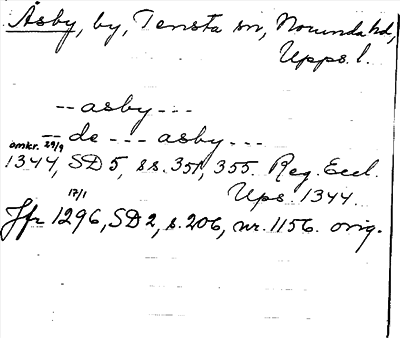 Åsby, by, Tensta sn, Norunda hd,
Upps. l.
-- asby ---
-- de --- asby ---
omkr. 29/9
1344, SD 5, ss. 351, 355. Reg. Eccl.
Ups. 1344.
17/1
Jfr 1296, SD 2, s. 206, nr. 1156. orig.